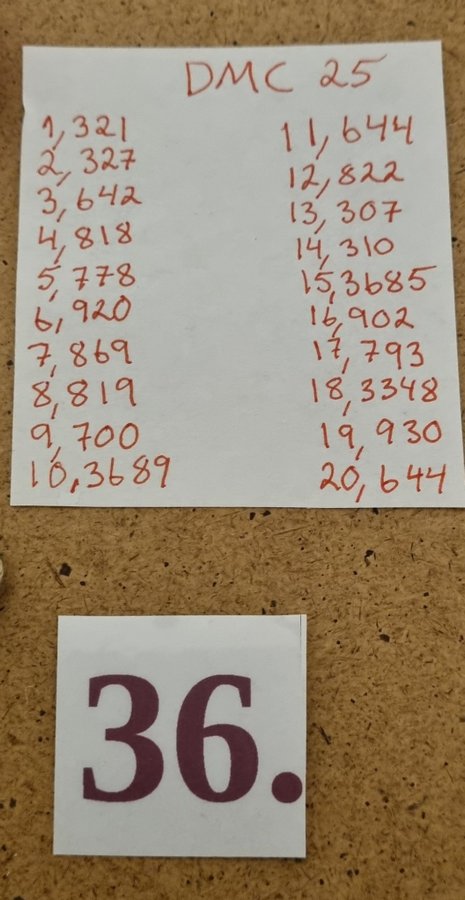 DMC 25
1,321
2,327
3,642
4,818
5,778
6,920
7,869
8,819
9,700
10,3689
11,644
12,822
13,307
14,310
15,3685
16,902
17,793
18,3348
19,930
20,644
36.